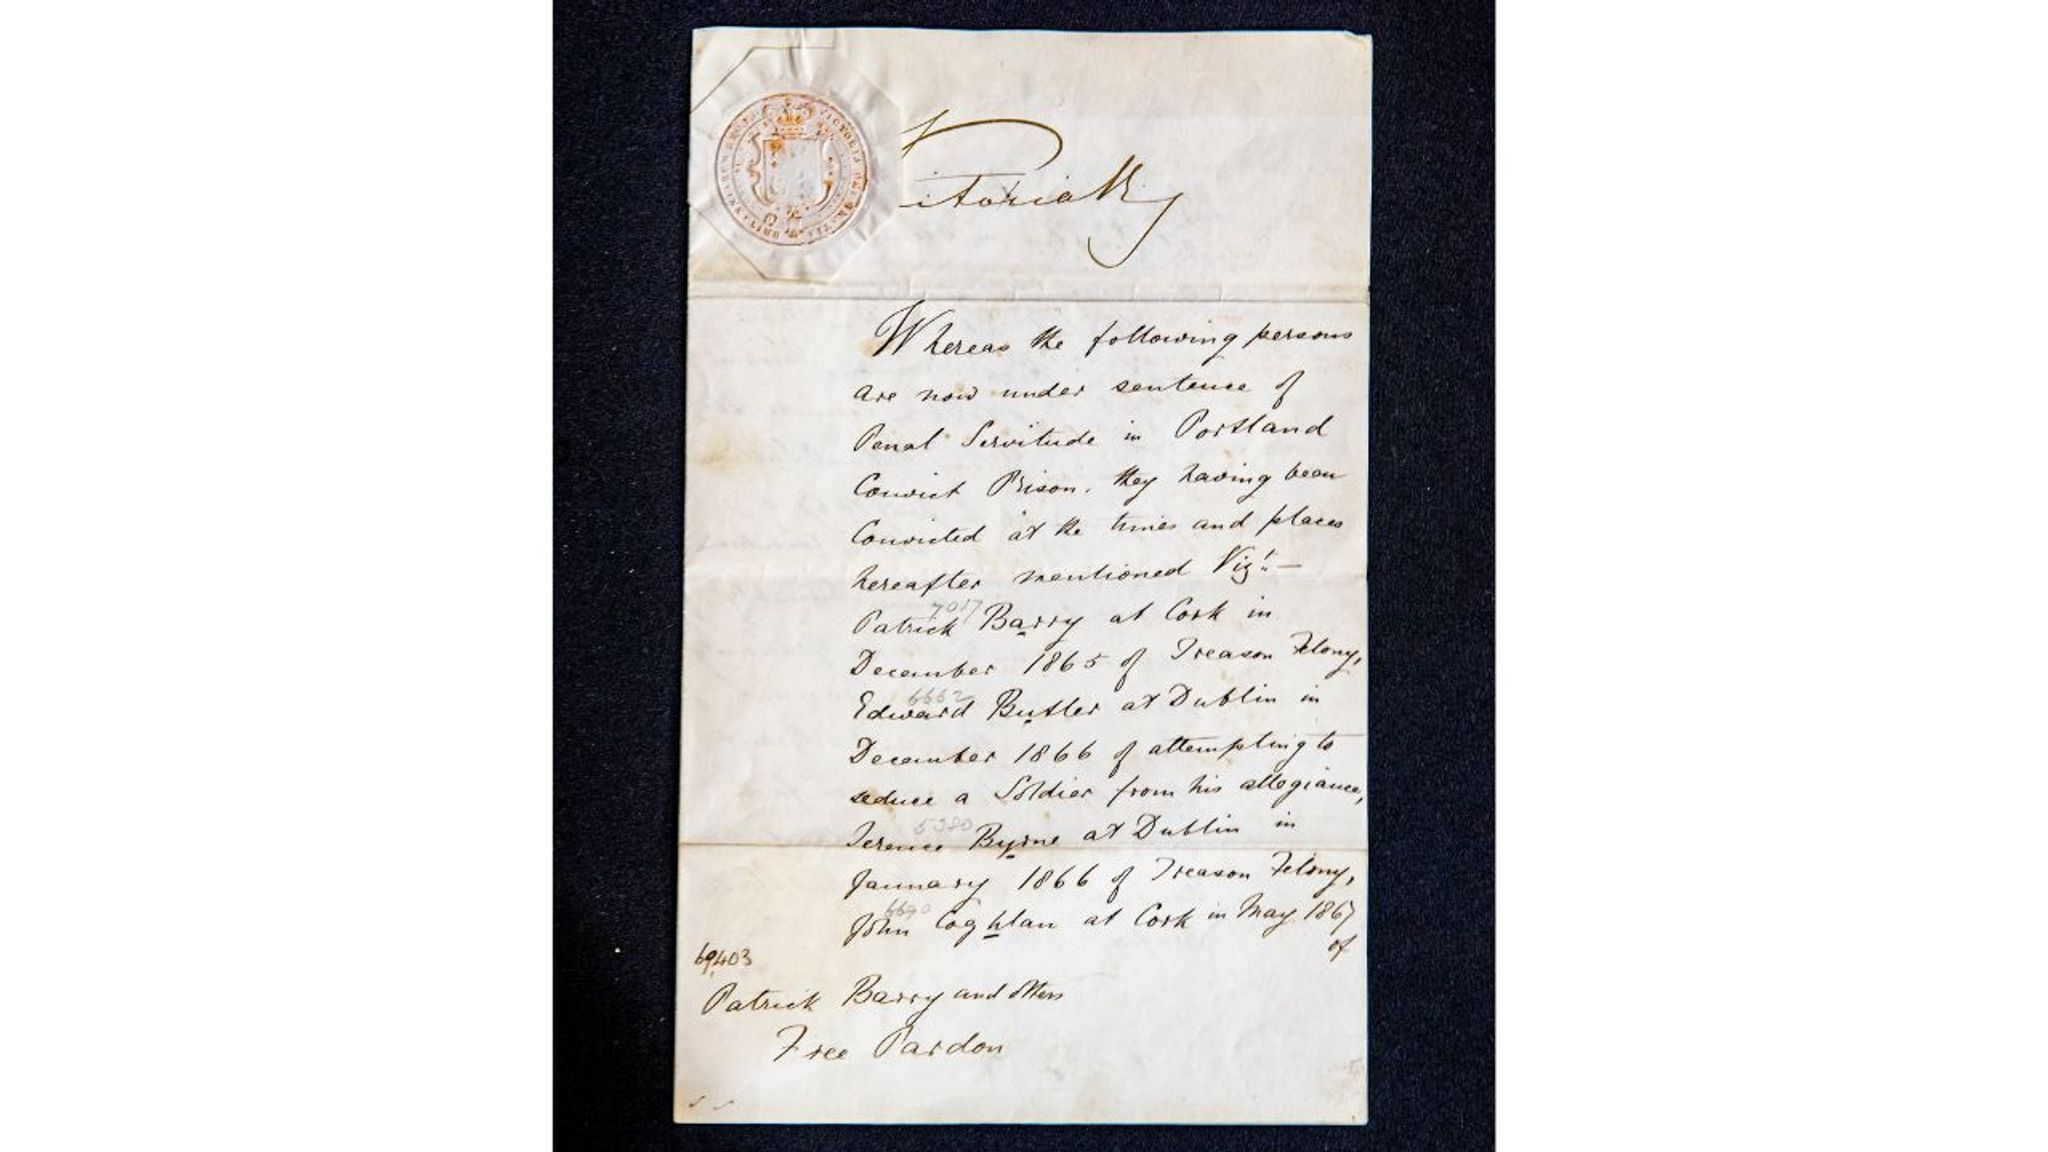 VICTORIA DEI GRATIA BRITANNIARUM
Victoria R
Whereas the following persons
are now under sentence of
Penal Servitude in Portland
Convict Prison, they having been
Convicted at the times and places
hereafter mentioned Vizt:—
7017
Patrick Barry at Cork in
December 1865 of Treason Felony,
6662
Edward Butler at Dublin in
December 1866 of attempting to
seduce a Soldier from his allegiance,
5380
Terence Byrne at Dublin in
January 1866 of Treason Felony,
6690
John Coghlan at Cork in May 1867
of
69,403
Patrick Barry and others
Free Pardon